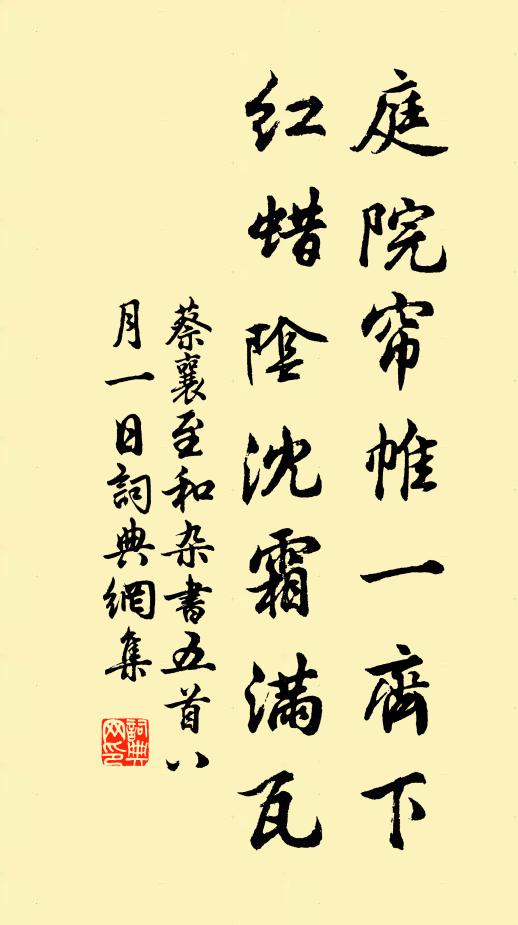 庭院帘帷一齊下
红蜡陰沈霜满瓦
蔡襄至和杂書五首八
月一日詞典網集
詞典
网印